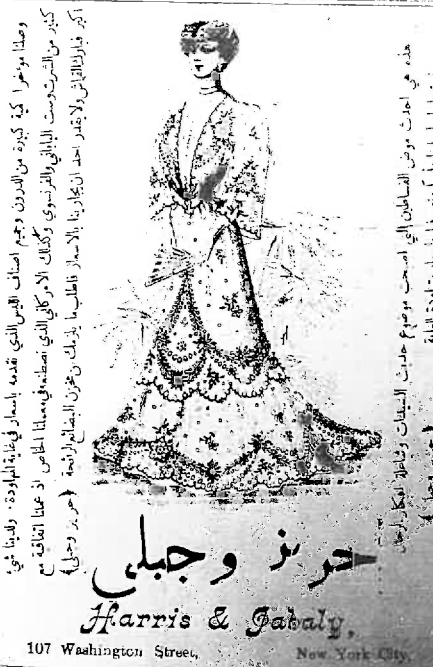 هذه هي احدث موض الفساطين التي اصبحت موضوع حديث السيدات وشاغلة افكار الرجال
وصلنا مؤخرا كمية كبيرة من الدرون وجميع اصناف اللبس الذي نقدمه باسعار في غاية المهاودة . ولدينا شيء
كثير من الشرت وست الياباني والفرنسوي وكذلك الاميركاني الذي نصطنعه في معملنا الخاص اذ عملنا اتفاقية مع
اكبر فبارك القماش ولا يقدر احد ان يجارينا بالاسعار فاطلب ما يلزمك من مخزن البضائع الرائجة ( حريز وجبلي )
حريز وجبلي
Harris & Jabaly,
107 Washington Street, New York City,